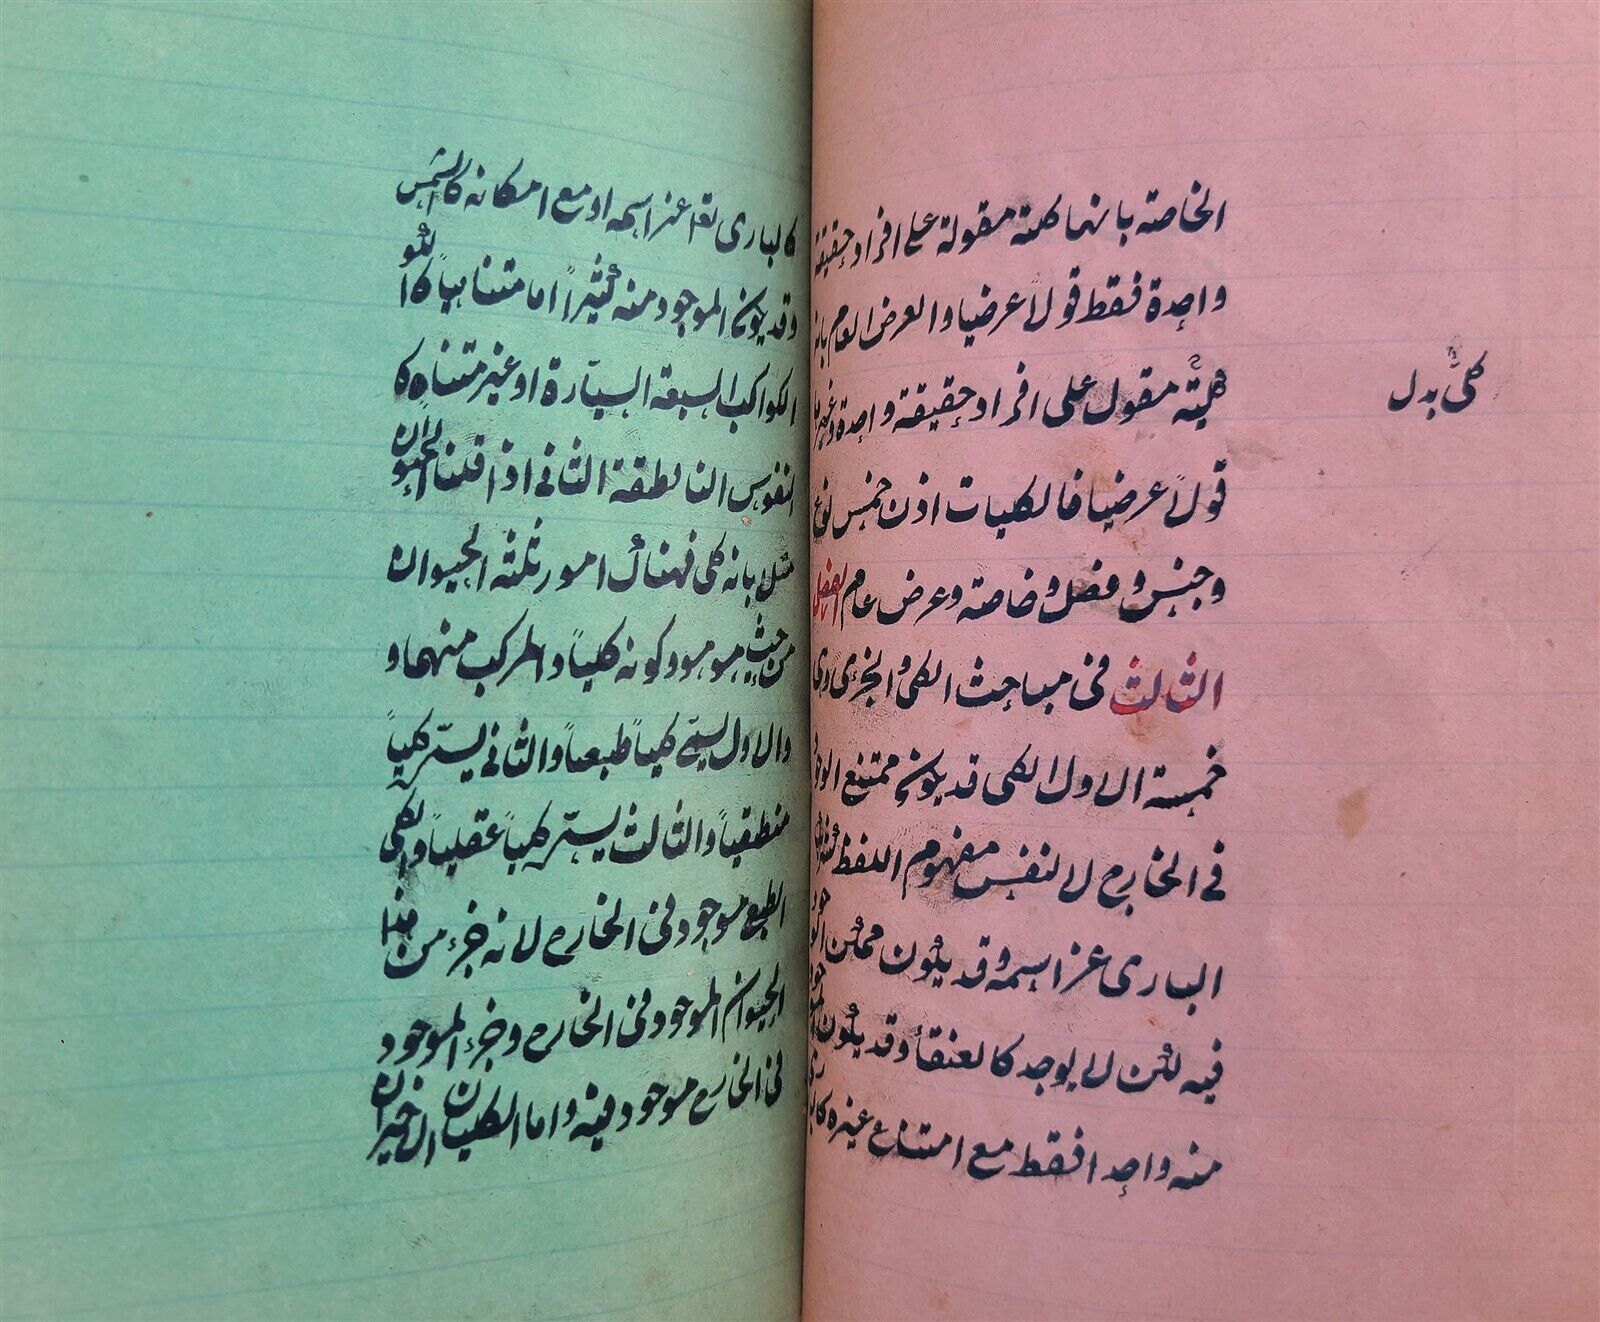 الخاصة بانها كلية مقولة على افراد حقيقة
واحدة فقط قولاً عرضيا والعرض العام بانه
كلية مقول على افراد حقيقة واحدة وغيرها
كلىٌّ بدل
قولاً عرضيا فالكليات اذن خمس نوع
وجنس وفصل وخاصة وعرض عام الفصل
الثالث فى مباحث الكلى والجزئى وهى
خمسة الاول الكلى قد يكون ممتنع الوجود
فى الخارج لا لنفس مفهوم اللفظ كشريك
البارى عز اسمه وقد يكون ممكن الوجود
فيه لكن لا يوجد كالعنقاء وقد يكون الموجود
منه واحدا فقط مع امتناع غيره
كالبارى تعا عز اسمه او مع امكانه كالشمس
وقد يكون الموجود منه كثيراً اما متناهياً كا
الكواكب السبعة السيّارة او غير متناه كا
النفوس الناطقة الثانى اذا قلنا الحيوان
مثلا بانه كلى فهناك امور ثلثة الحيوان
من حيث هو هو وكونه كلياً والمركب منهما و
والاول يسمى كلياً طبعياً والثانى يسمى كلياً
منطقياً والثالث يسمى كلياً عقلياً والكلى
الطبع موجود فى الخارج لانه جزء من هذا
الحيوان الموجود فى الخارج وجزء الموجود
فى الخارج موجود فيه واما الكليان الاخيران